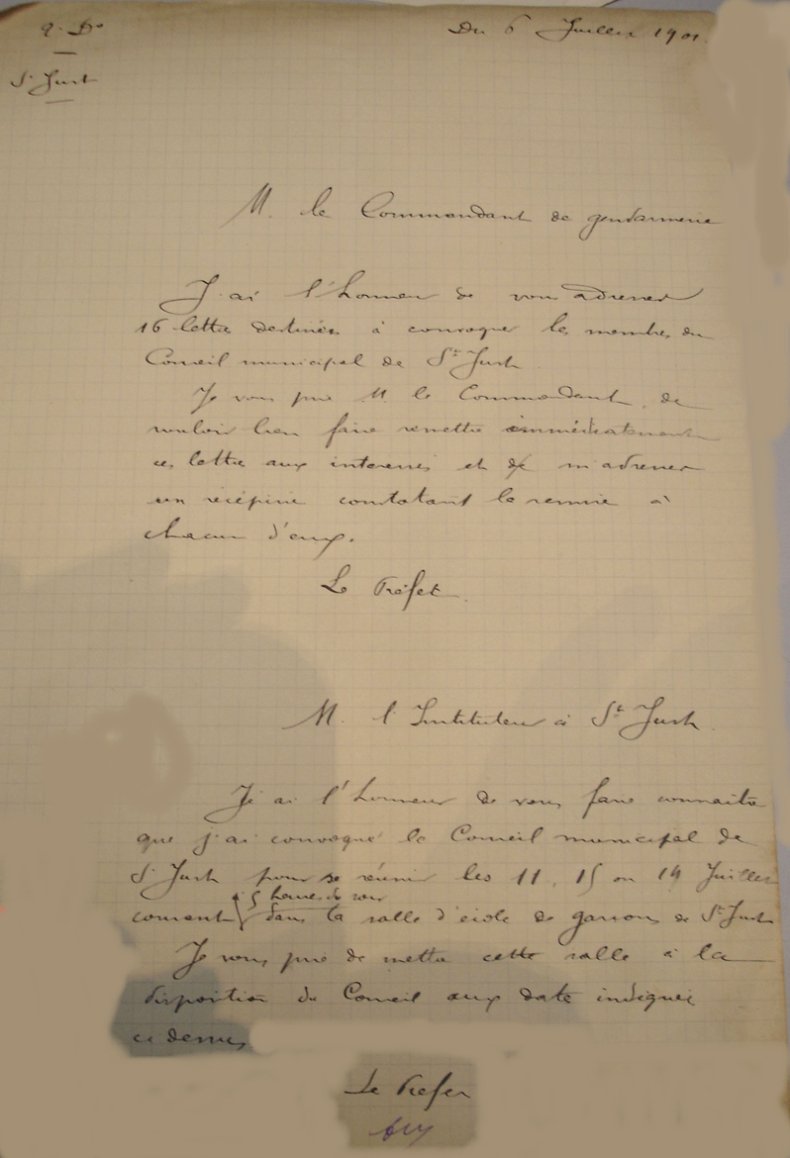 2. Do
Du 6 Juillet 1901.
St Just
M. le Commandant de gendarmerie
J'ai l'honneur de vous adresser
16 lettres destinées à convoquer les membres du
Conseil municipal de St Just
Je vous prie M le Commandant, de
vouloir bien faire remettre immédiatement
ces lettres aux interessés et de m'adresser
un récépissé constatant la remise à
chacun d'eux.
Le Préfet.
M. l'Instituteur à St Just.
J'ai l'honneur de vous faire connaitre
que j'ai convoqué le Conseil municipal de
St Just pour se réunir les 11, 15 ou 19 Juillet
à 5 heures du soir
courant dans la salle d'école de garçons de St Just
Je vous prie de mettre cette salle à la
disposition du Conseil aux dates indiquées
ci dessus
Le Préfet